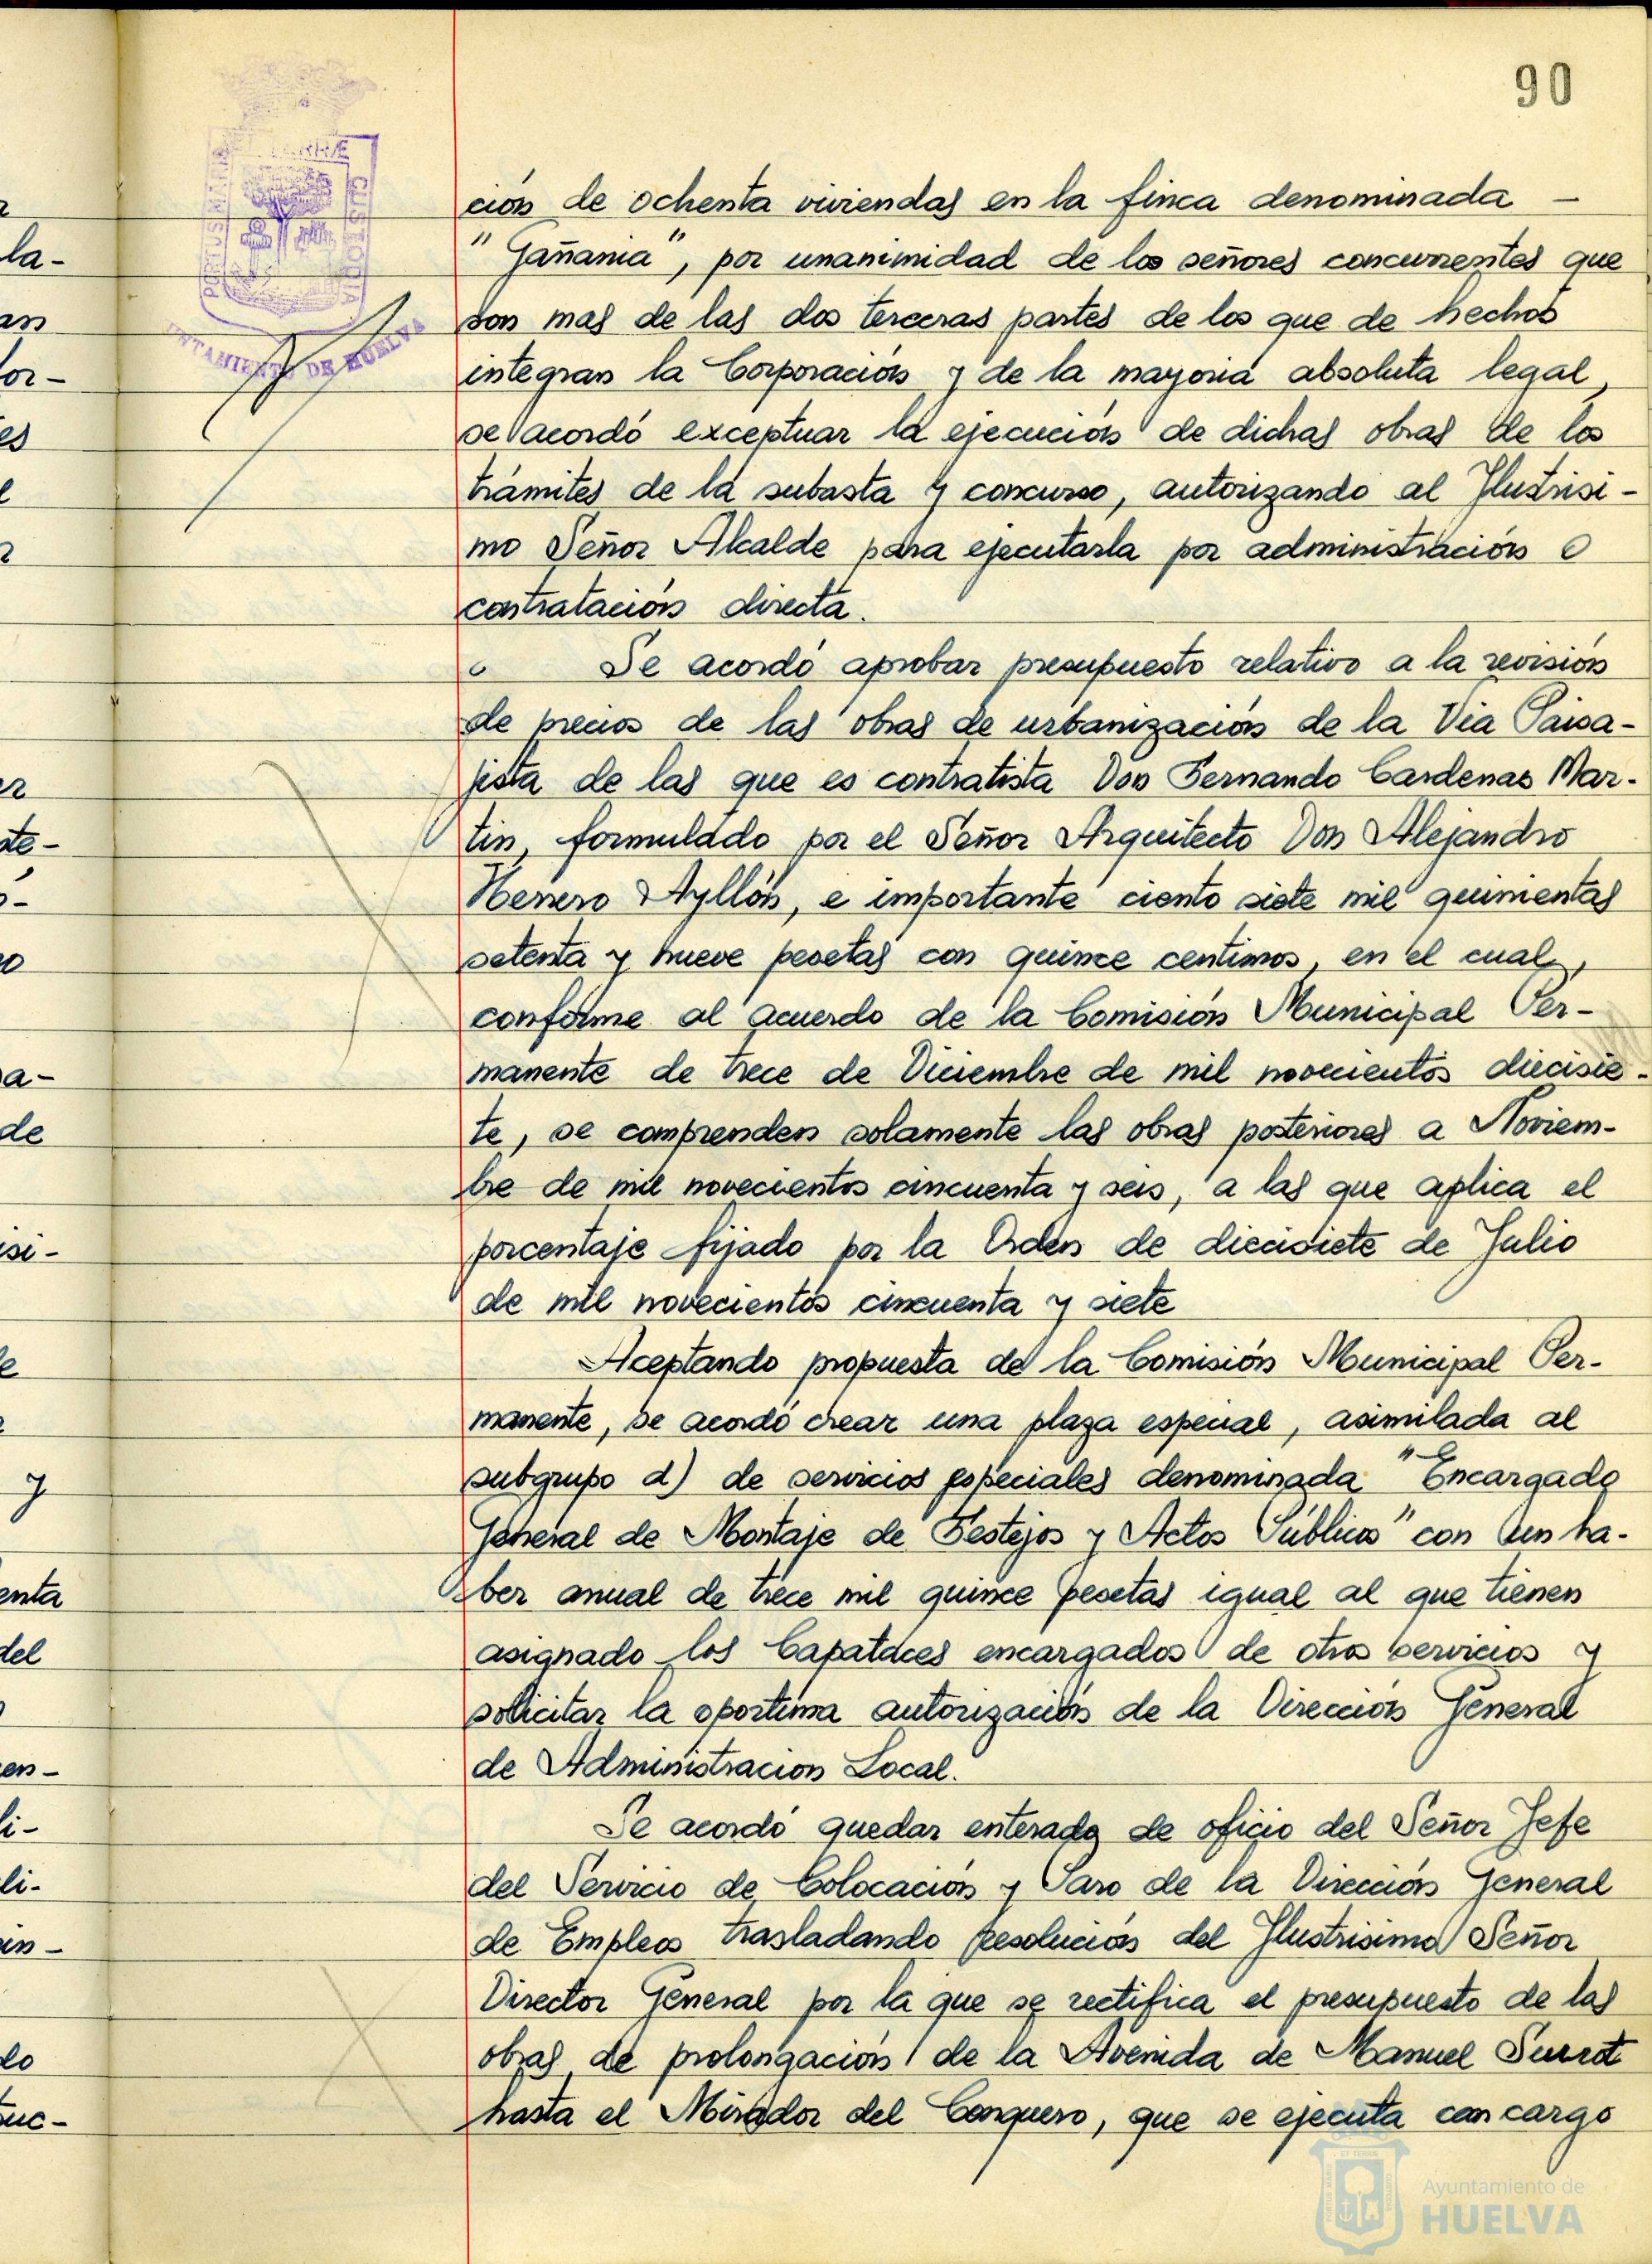 90
ción de ochenta viviendas en la finca denominada –
"Gañania", por unanimidad de los señores concurrentes que
son mas de las dos terceras partes de los que de hechos
integran la Corporación y de la mayoria absoluta legal,
se acordó exceptuar la ejecución de dichas obras de los
trámites de la subasta y concurso, autorizando al Ilustrisi-
mo Señor Alcalde para ejecutarla por administración o
contratación directa.
Se acordó aprobar presupuesto relativo a la revisión
de precios de las obras de urbanización de la Via Paisa-
jista de las que es contratista Don Fernando Cardenas Mar-
tin, formulado por el Señor Arquitecto Don Alejandro
Herrero Ayllón, e importante ciento siete mil quinientas
setenta y nueve pesetas con quince centimos, en el cual,
conforme al acuerdo de la Comisión Municipal Per-
manente de trece de Diciembre de mil novecientos diecisie-
te, se comprenden solamente las obras posteriores a Noviem-
bre de mil novecientos cincuenta y seis, a las que aplica el
porcentaje fijado por la Orden de diecisiete de Julio
de mil novecientos cincuenta y siete
Aceptando propuesta de la Comisión Municipal Per-
manente, se acordó crear una plaza especial, asimilada al
subgrupo d) de servicios especiales denominada "Encargado
General de Montaje de Festejos y Actos Públicos" con un ha-
ber anual de trece mil quince pesetas igual al que tienen
asignado los Capataces encargados de otros servicios y
solicitar la oportuna autorización de la Dirección General
de Administracion Local.
Se acordó quedar enterado de oficio del Señor Jefe
del Servicio de Colocación y Paro de la Dirección General
de Empleos trasladando resolución del Ilustrisimo Señor
Director General por la que se rectifica el presupuesto de las
obras de prolongación de la Avenida de Manuel Surrot
hasta el Mirador del Conquero, que se ejecuta con cargo
PORTUS MARIS ET TERRAE CUSTODIA
AYUNTAMIENTO DE HUELVA
Ayuntamiento de
HUELVA